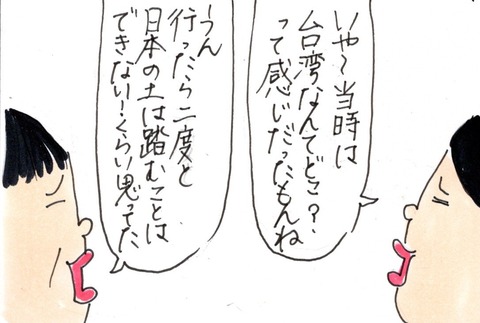 いや〜当時は
台湾なんてどこ？
って感じだったもんね
うん
行ったら二度と
日本の土は踏むことは
できない！くらい思ってた